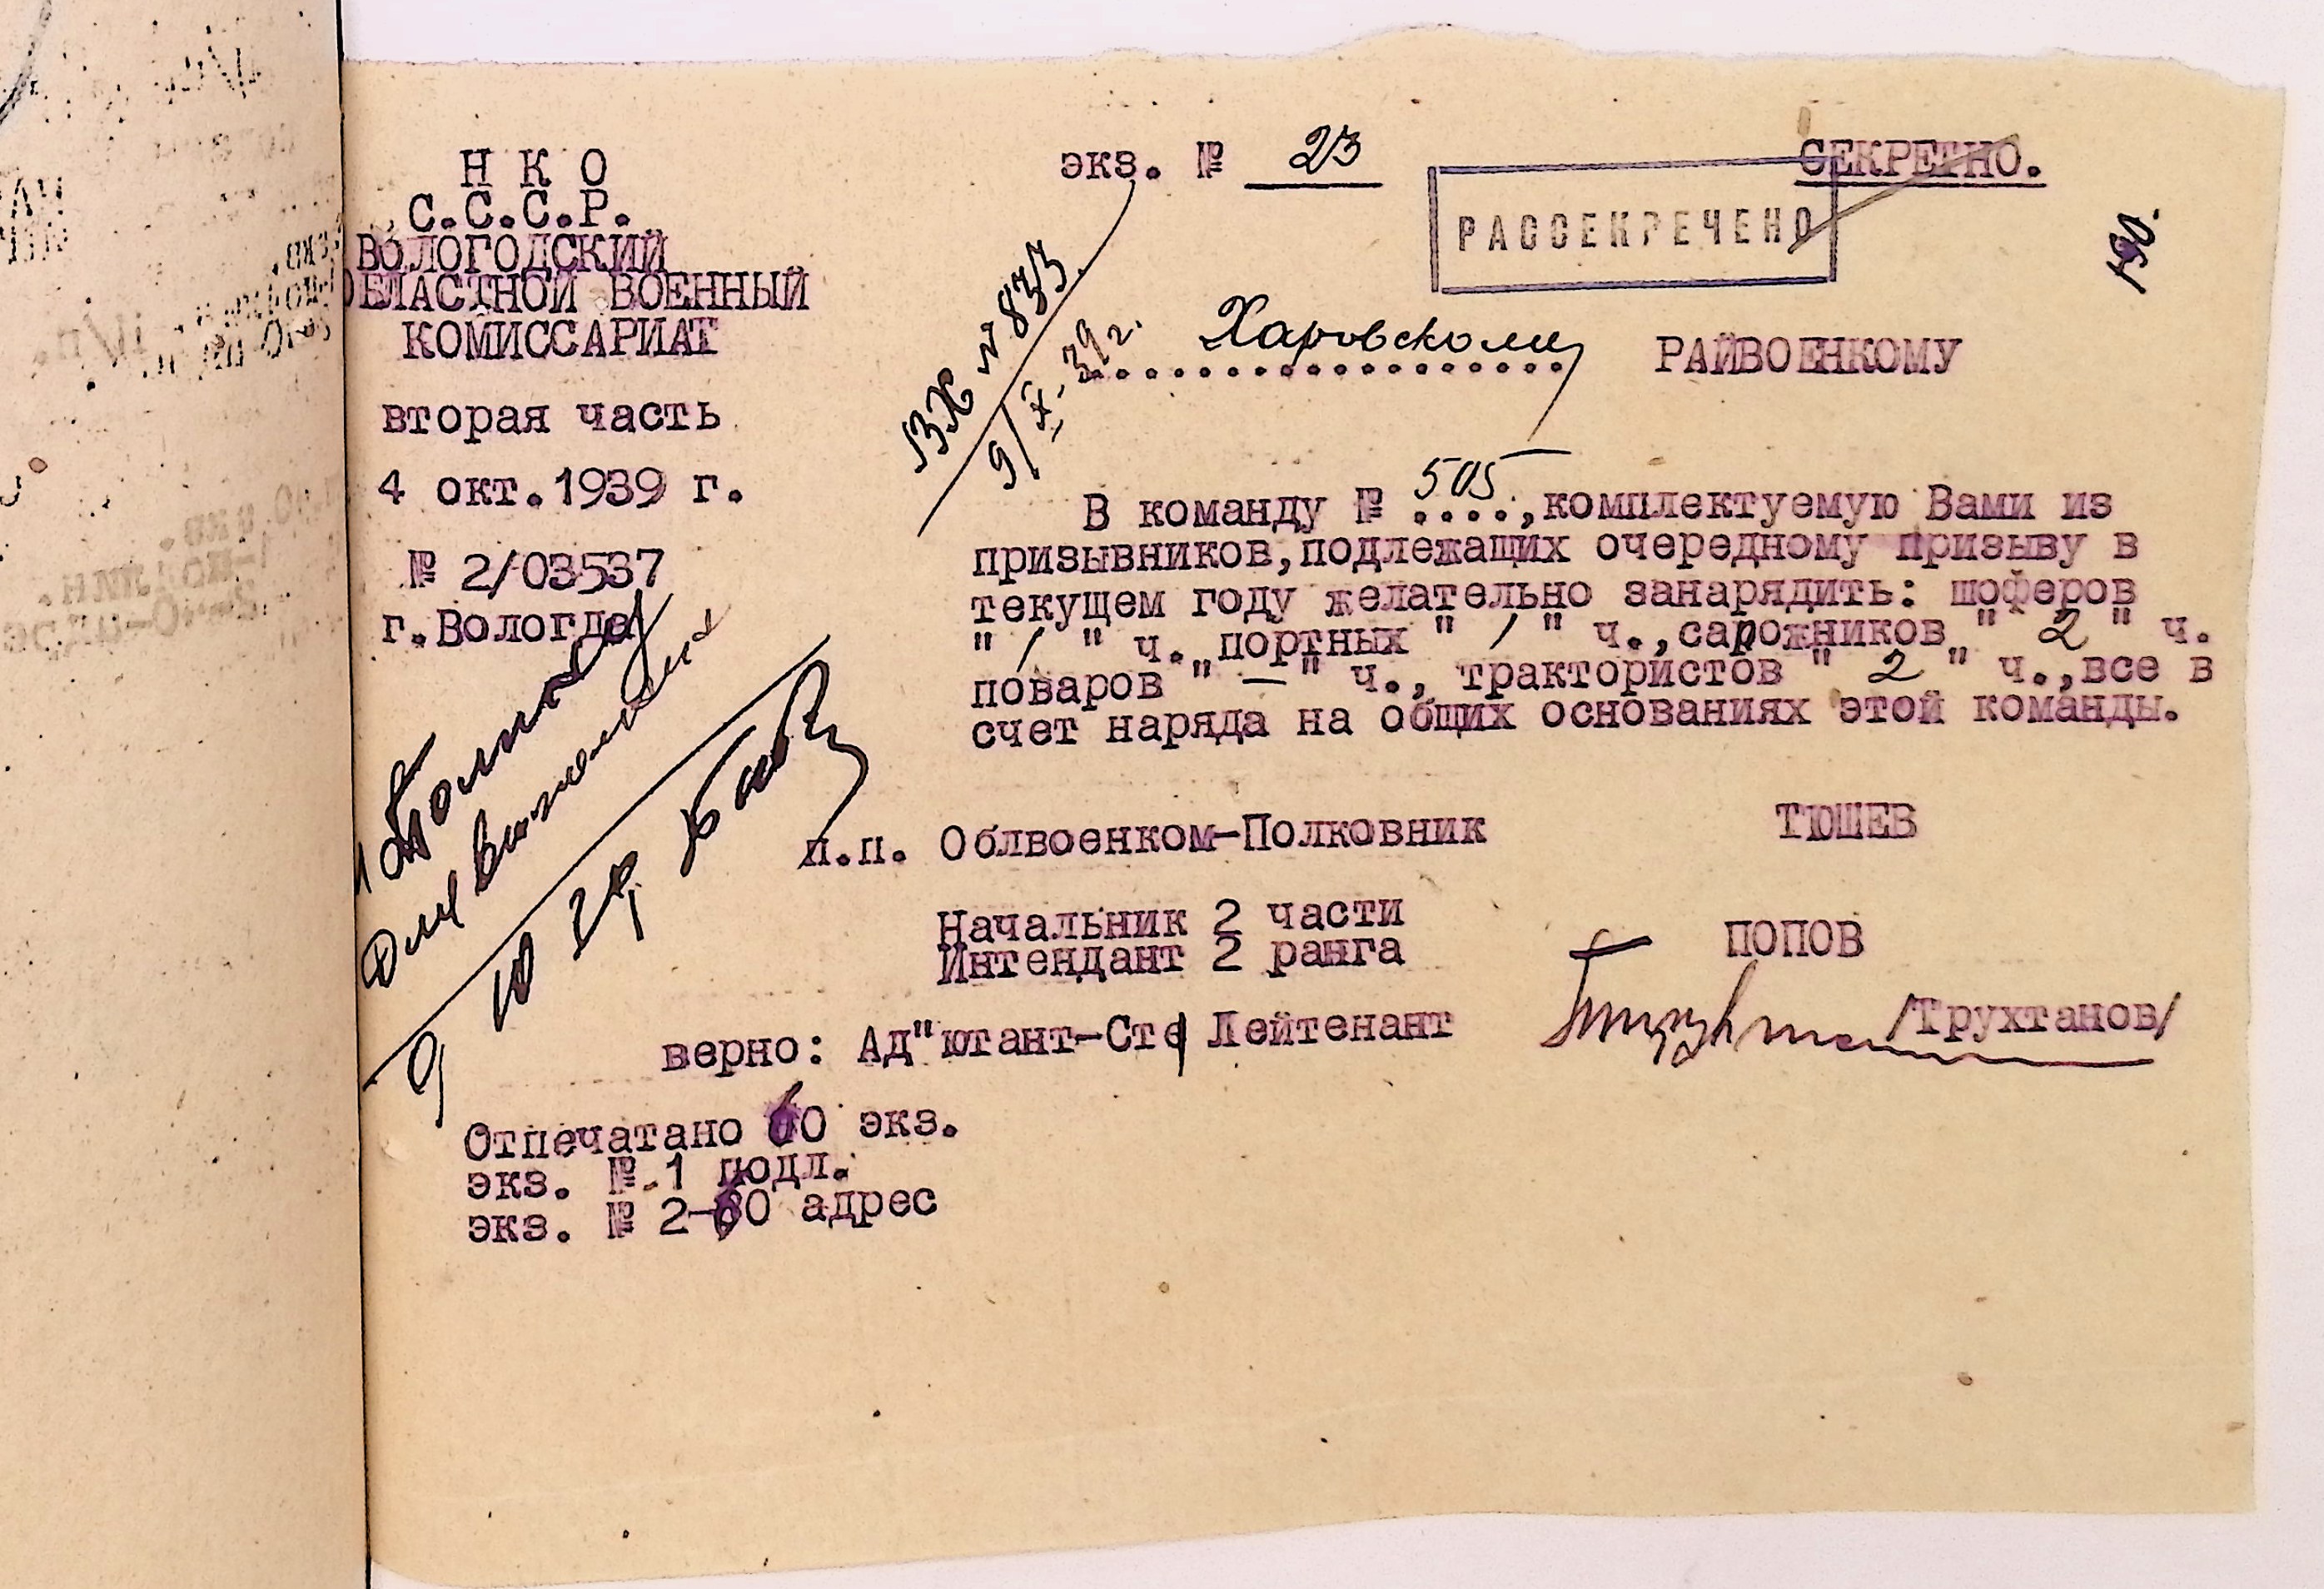 Н К О
С.С.С.Р.
ВОЛОГОДСКИЙ
ОБЛАСТНОЙ ВОЕННЫЙ
КОМИССАРИАТ
вторая часть
4 окт.1939 г.
№ 2/03537
г.Вологда
экз. № 23
СЕКРЕТНО.
РАССЕКРЕЧЕНО
190.
ВХ № 833
9/X-39 г.
Харовскому РАЙВОЕНКОМУ
В команду № 505, комплектуемую Вами из
призывников,подлежащих очередному призыву в
текущем году желательно занарядить: шоферов
" 1 " ч. портных " 1 " ч.,сапожников " 2 " ч.
поваров " — " ч., трактористов " 2 " ч.,все в
счет наряда на общих основаниях этой команды.
п.п. Облвоенком-Полковник ТЮШЕВ
Начальник 2 части
Интендант 2 ранга ПОПОВ
верно: Ад"ютант-Ст. Лейтенант /Трухтанов/
Отпечатано 60 экз.
экз. № 1 подл.
экз. № 2-60 адрес